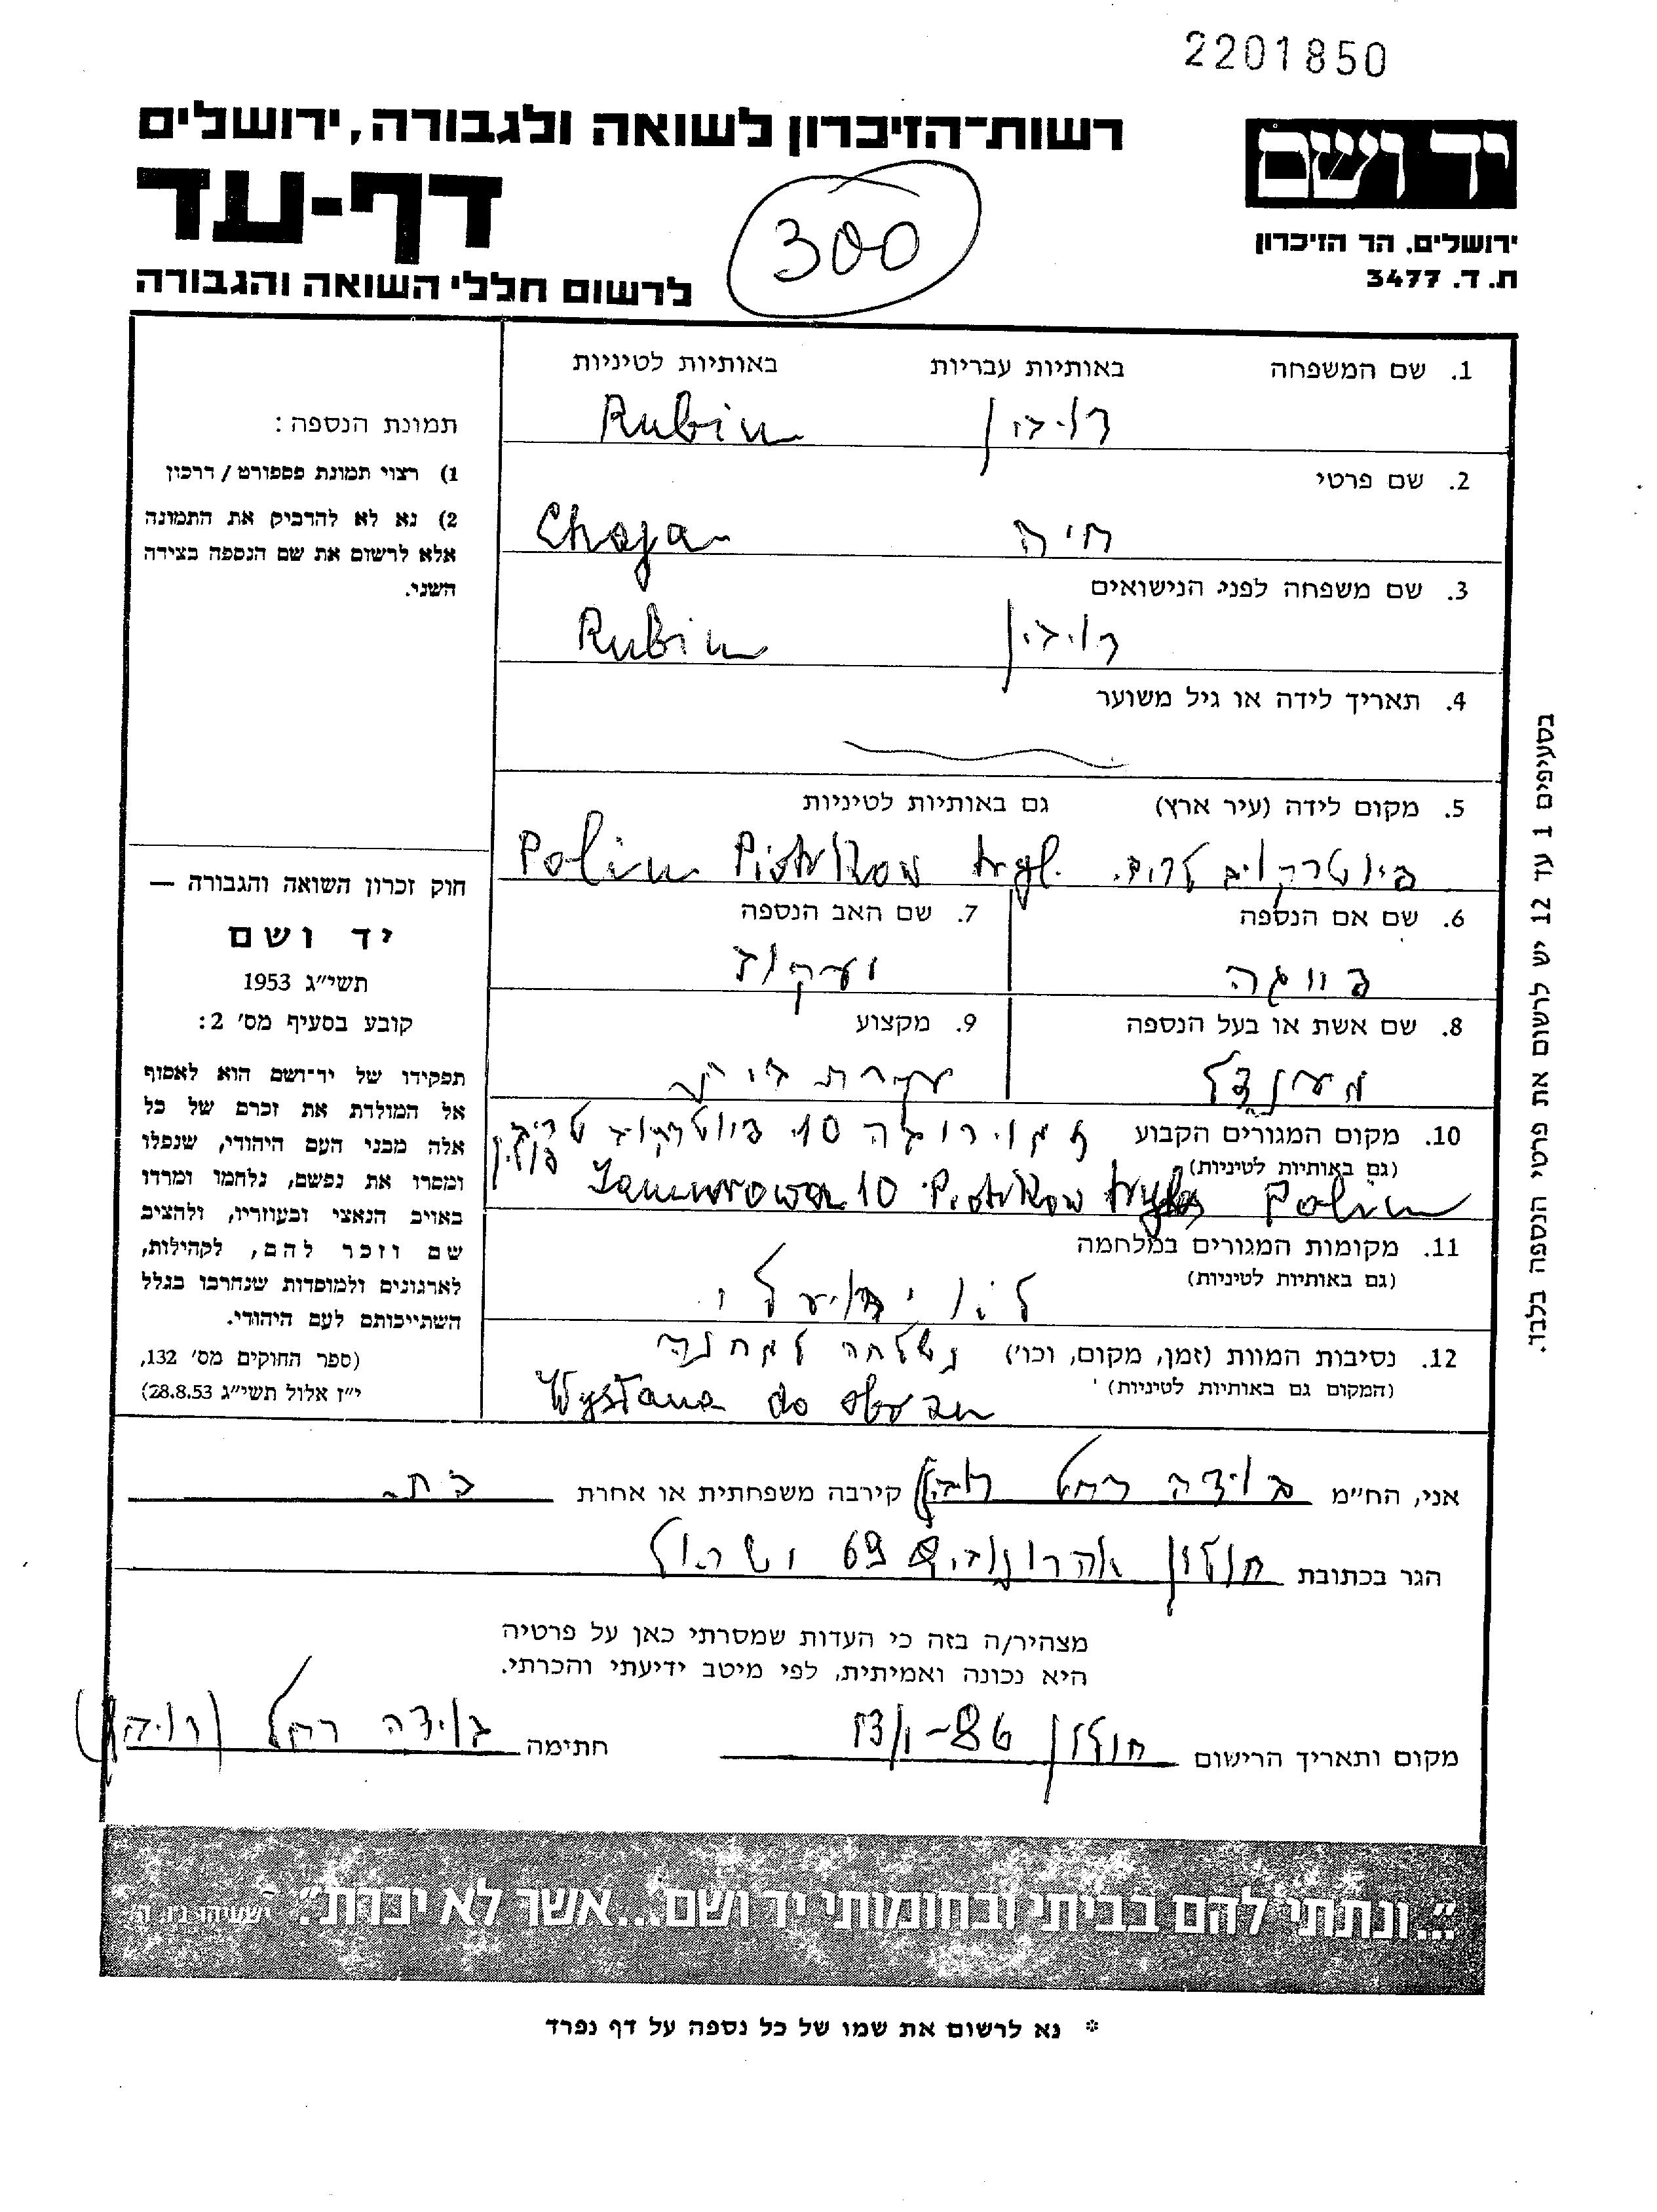 2201850
רשות־הזיכרון לשואה ולגבורה, ירושלים
יד ושם
דף-עד
300
ירושלים, הר הזיכרון
ת. ד. 3477
לרשום חללי השואה והגבורה
1. שם המשפחה באותיות עבריות באותיות לטיניות
רובין Rubin
2. שם פרטי
חיה Chaja
3. שם משפחה לפני הנישואים
רובין Rubin
4. תאריך לידה או גיל משוער
5. מקום לידה (עיר ארץ) גם באותיות לטיניות
פיוטרקוב טריב. Polin Piotrkow tryb.
6. שם אם הנספה 7. שם האב הנספה
יעקוב
8. שם אשת או בעל הנספה 9. מקצוע
מענדל עקרת בית
10. מקום המגורים הקבוע 10 פיוטרקוב טריב. פולין
(גם באותיות לטיניות)
10 Piotrkow tryb Polin
11. מקומות המגורים במלחמה
(גם באותיות לטיניות)
12. נסיבות המוות (זמן, מקום, וכו׳) נשלחה למחנה
(המקום גם באותיות לטיניות)
Wysłana do obozu
תמונת הנספה:
1) רצוי תמונת פספורט / דרכון
2) נא לא להדביק את התמונה
אלא לרשום את שם הנספה בצידה
השני.
חוק זכרון השואה והגבורה —
יד ושם
תשי״ג 1953
קובע בסעיף מס׳ 2:
תפקידו של יד־ושם הוא לאסוף
אל המולדת את זכרם של כל
אלה מבני העם היהודי, שנפלו
ומסרו את נפשם, נלחמו ומרדו
באויב הנאצי ובעוזריו, ולהציב
שם וזכר להם, לקהילות,
לארגונים ולמוסדות שנחרבו בגלל
השתייכותם לעם היהודי.
(ספר החוקים מס׳ 132,
י״ז אלול תשי״ג 28.8.53)
בסעיפים 1 עד 12 יש לרשום את פרטי הנספה בלבד.
אני, הח״מ רחל רובין קירבה משפחתית או אחרת בת
הגר בכתובת חולון 69 ישראל
מצהיר/ה בזה כי העדות שמסרתי כאן על פרטיה
היא נכונה ואמיתית, לפי מיטב ידיעתי והכרתי.
מקום ותאריך הרישום חולון חתימה רחל (רובין)
״...ונתתי להם בביתי ובחומותי יד ושם...אשר לא יכרת״. ישעיהו נ״ו, ה׳
* נא לרשום את שמו של כל נספה על דף נפרד